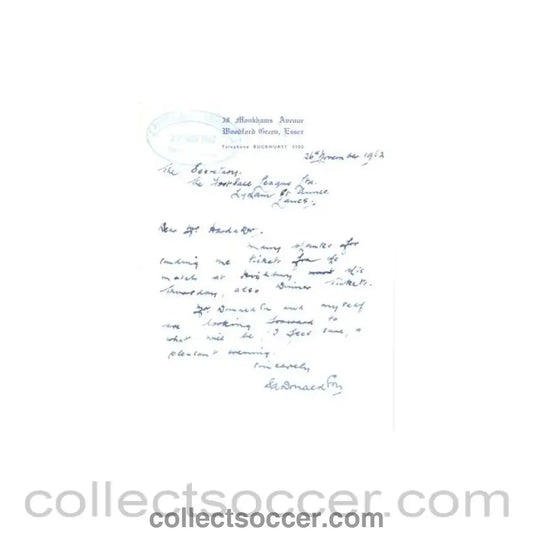 38, Monkhams Avenue
Woodford Green, Essex
Telephone BUCKHURST
26th November 1962
The Secretary,
The Football League Ltd.
Lytham St Annes
Lancs.
Dear Mr Hardaker,
Many thanks for
sending me tickets for the
match at Highbury this
Thursday, also Dinner Tickets.
Donaldson and myself
are looking forward to
what will be, I feel sure, a
pleasant evening.
Sincerely
Donaldson
collectsoccer.com
collectsoccer.com